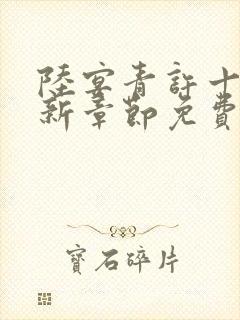 陸宴青許十
新章節免費
寶石碎片